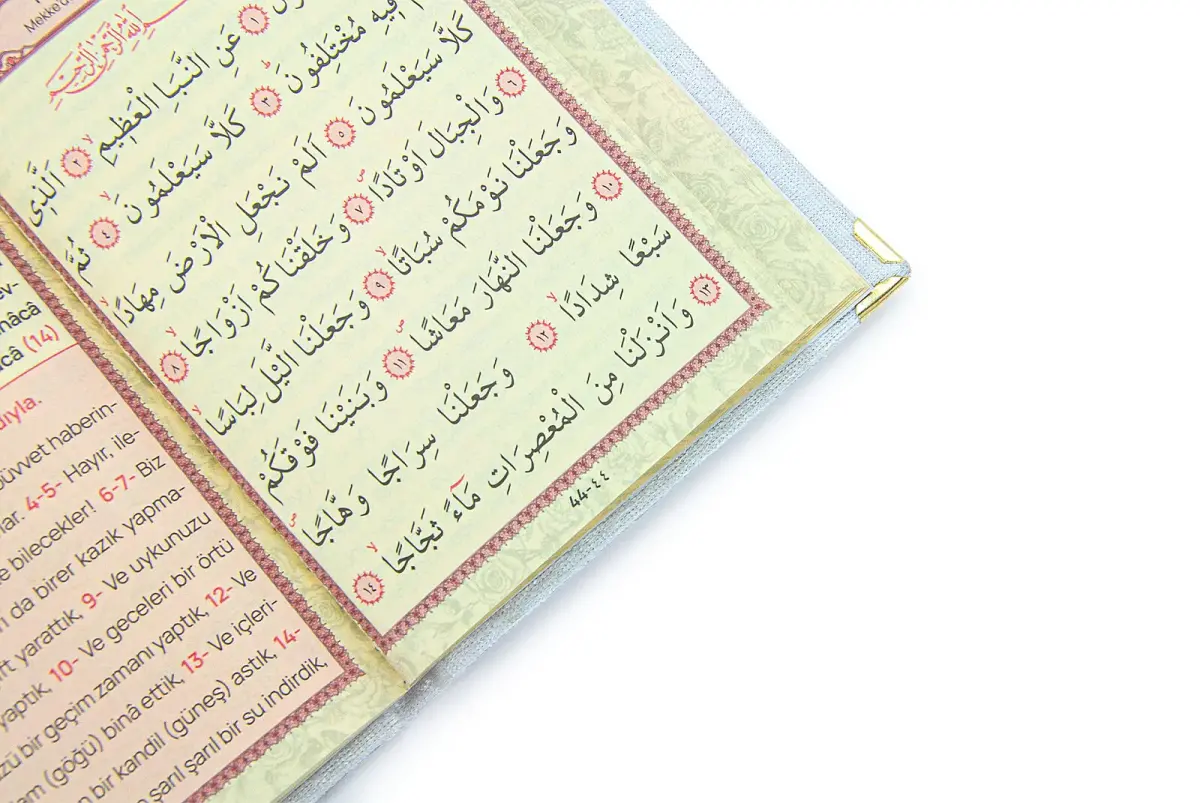 Mekke'd
بِسْمِ اللّٰهِ الرَّحْمٰنِ الرَّحِيمِ
١ عَنِ النَّبَاِ الْعَظِيمِ ٢ اَلَّذِى
فِيهِ مُخْتَلِفُونَ ٣ كَلَّا سَيَعْلَمُونَ ٤ ثُمَّ
كَلَّا سَيَعْلَمُونَ ٥ اَلَمْ نَجْعَلِ الْاَرْضَ مِهَادًا
٦ وَالْجِبَالَ اَوْتَادًا ٧ وَخَلَقْنَاكُمْ اَزْوَاجًا ٨
وَجَعَلْنَا نَوْمَكُمْ سُبَاتًا ٩ وَجَعَلْنَا الَّيْلَ لِبَاسًا
١٠ وَجَعَلْنَا النَّهَارَ مَعَاشًا ١١ وَبَنَيْنَا فَوْقَكُمْ
سَبْعًا شِدَادًا ١٢ وَجَعَلْنَا سِرَاجًا وَهَّاجًا
١٣ وَاَنْزَلْنَا مِنَ الْمُعْصِرَاتِ مَٓاءً ثَجَّاجًا ١٤
44-٤٤
ev-
nâca
câ (14)
dıyla.
büvvet haberin-
lar. 4-5- Hayır, ile-
e bilecekler! 6-7- Biz
rı da birer kazık yapma-
ift yarattık, 9- Ve uykunuzu
yaptık, 10- Ve geceleri bir örtü
züzü bir geçim zamanı yaptık, 12- Ve
am (göğü) binâ ettik, 13- Ve içleri-
n bir kandil (güneş) astık, 14-
n şarıl şarıl bir su indirdik,